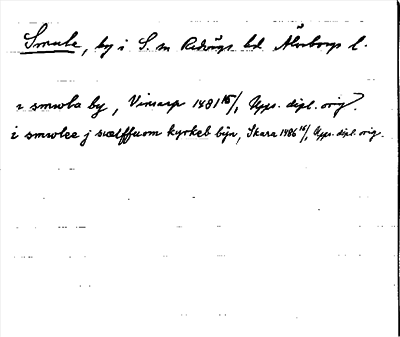 Smula, by i S. sn Redvägs hd Älvsborgs l.
i smwla by, Vinsarp 1481 15/1, Upps. dipl. orig.
i smwlee j swlffuom kyrkeb byn, Skara 1486 16/1, Upps. dipl. orig.